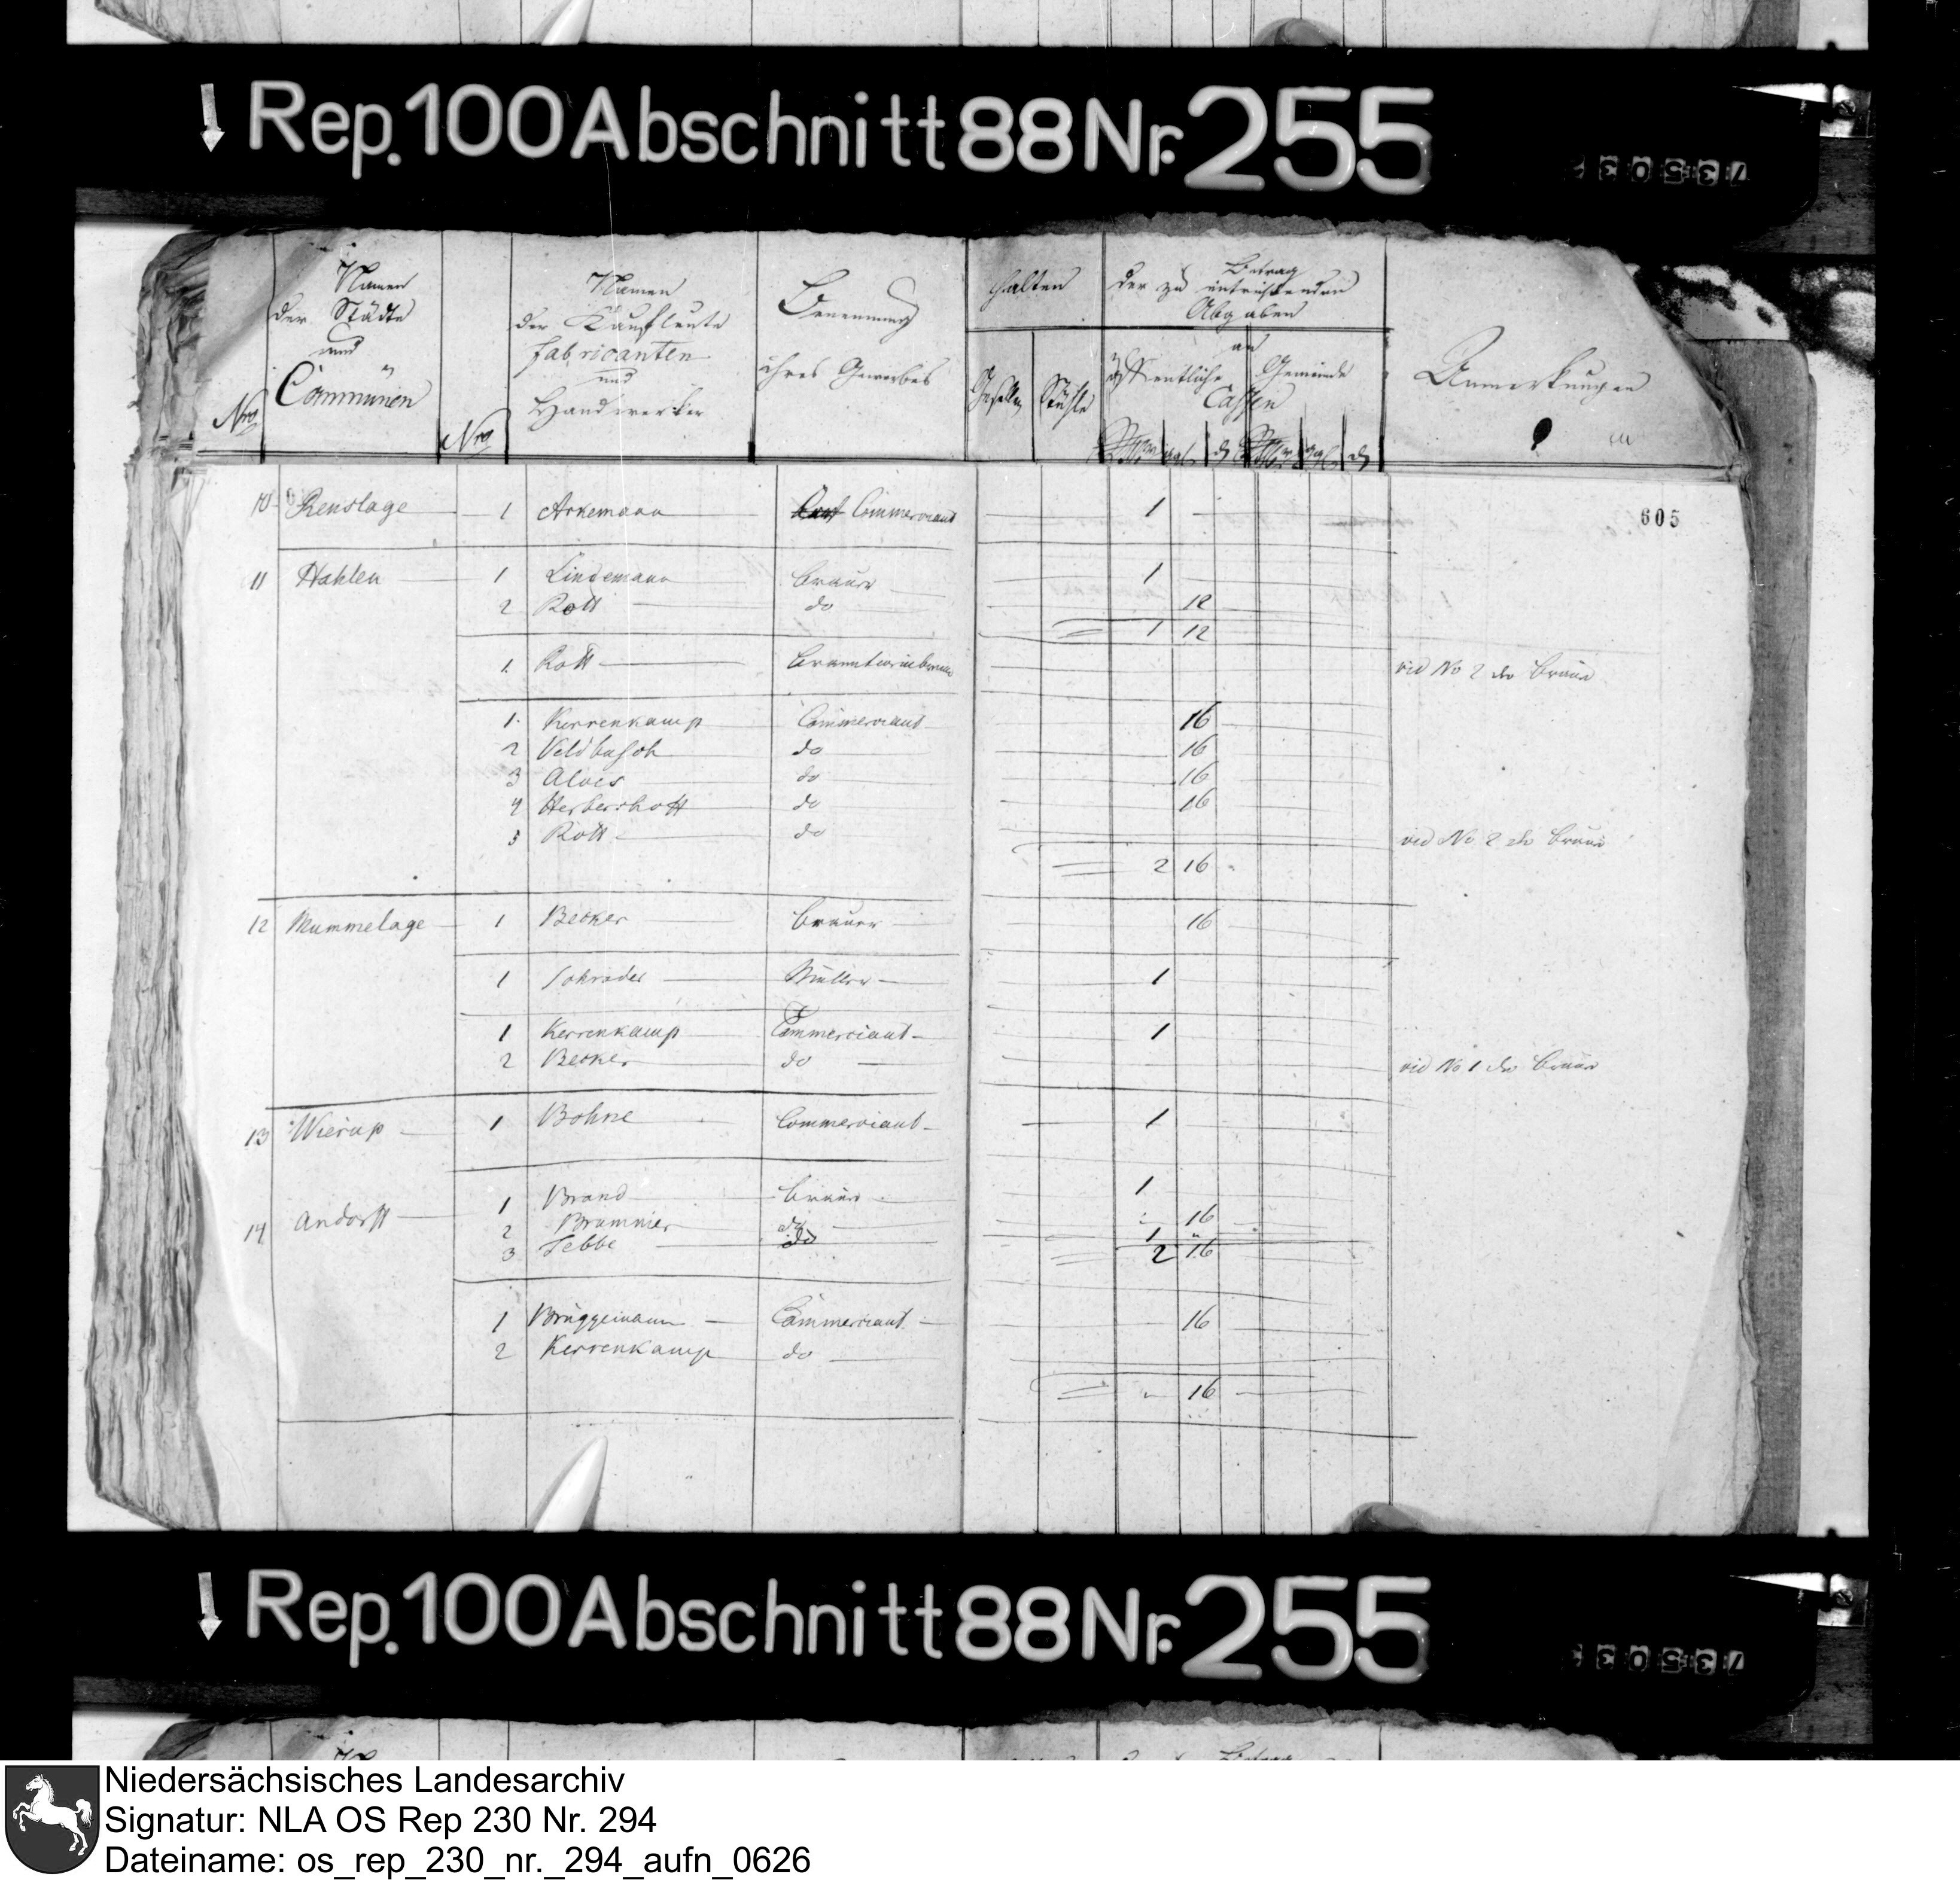 Rep. 100 Abschnitt 88 Nr. 255
Nro
Namen
der Städte
und
Communen
Nro
Namen
der Kaufleute
fabricanten
und
Handwerker
Benennung
ihres Gewerbes
halten
Gesellen
Stühle
Betrag
der zu entrichtenden
Abgaben
an
öffentliche Gemeinde
Cassen
Anmerkungen
605
10 Renslage 1 Arkemann Commerciant 1
11 Hahlen 1 Lindemann Brauer 1
2 Rott do 12
1 12
1 Rott Branntweinbrenner vid No 2 der Brauer
1 Kerrenkamp Commerciant 16
2 Veldbusch do 16
3 Alves do 16
4 Herbershoff do 16
5 Rott do vid No 2 der Brauer
2 16
12 Mummelage 1 Becker Brauer 16
1 Schrader Müller 1
1 Kerrenkamp Commerciant 1
2 Becker do vid No 1 der Brauer
13 Wierup 1 Bohne Commerciant 1
14 Andorff 1 Brand Brauer 1
2 Brummer do 16
3 Tebbe do 1 "
2 16
1 Brüggemann Commerciant 16
2 Kerrenkamp do
" 16
Rep. 100 Abschnitt 88 Nr. 255
Niedersächsisches Landesarchiv
Signatur: NLA OS Rep 230 Nr. 294
Dateiname: os_rep_230_nr._294_aufn_0626